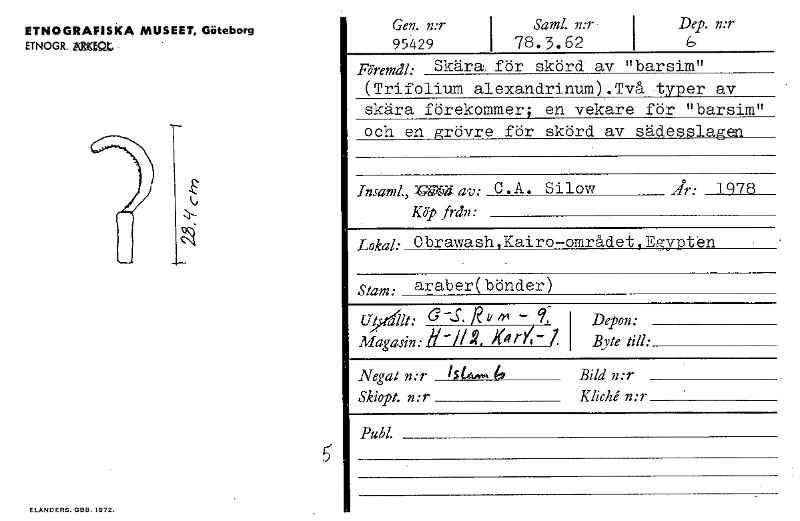 ETNOGRAFISKA MUSEET, Göteborg
ETNOGR. ARKEOL.
Gen. n:r Saml. n:r Dep. n:r
95429 78.3.62 6
Föremål: Skära för skörd av "barsim"
(Trifolium alexandrinum).Två typer av
skära förekommer; en vekare för "barsim"
och en grövre för skörd av sädesslagen
28.4 cm
Insaml., Gåva av: C.A. Silow År: 1978
Köp från:
Lokal: Obrawash,Kairo-området,Egypten
Stam: araber(bönder)
Utställt: G-S. Rum - 9. Depon:
Magasin: H-112. Kart.-1. Byte till:
Negat n:r Islam 6 Bild n:r
Skiopt. n:r Kliché n:r
Publ.
5
ELANDERS. GBB. 1972.